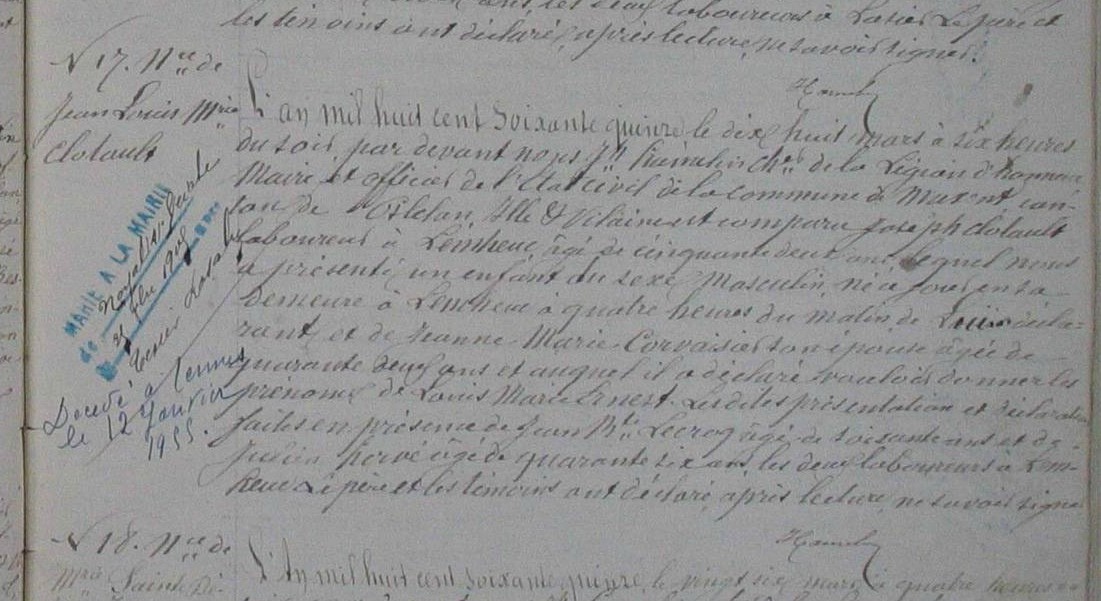 les témoins ont déclaré, après lecture, ne savoir signer.
Hamelin
N 17. Nce de
Jean Louis Mrie
Clotault
L'an mil huit cent soixante quinze le dix huit mars à six heures
du soir par devant nous Jn Hamelin Cher de la Légion d'honneur
Maire et officier de l'Etat civil de la commune de Maxent can-
ton de Plélan, Ille & Vilaine est comparu Joseph Clotault
laboureur à Lemheuc âgé de cinquante deux ans, lequel nous
a présenté un enfant du sexe Masculin, né ce jour en sa
demeure à Lemheuc à quatre heures du matin de lui décla-
rant, et de Jeanne Marie Corvaisier son épouse âgée de
quarante deux ans et auquel il a déclaré vouloir donner les
prénoms de Louis Marie Ernest. Lesdites présentation et déclaration
faites en présence de Jean Bte Lecroq âgé de soixante ans et de
Julien hervé âgé de quarante six ans, les deux laboureurs à Lem-
heuc Le père et les témoins ont déclaré, après lecture, ne savoir signer
Hamelin
MARIÉ A LA MAIRIE
de
le
Décédé à Rennes
le 12 Janvier
1955.
N 18. Nce de
Mrie Sainte Dé-
L'An mil huit cent soixante quinze, le vingt six mars à quatre heures